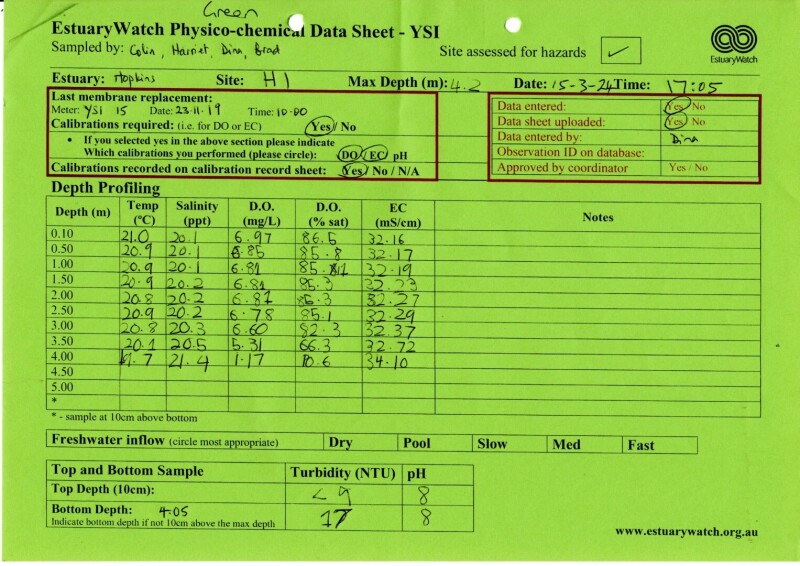 Green
EstuaryWatch Physico-chemical Data Sheet - YSI
Sampled by: Colin, Harriet, Dina, Brad
Site assessed for hazards ✓
EstuaryWatch
Estuary: Hopkins Site: H1 Max Depth (m): 4.2 Date: 15-3-24 Time: 17:05
Last membrane replacement:
Meter: YSI 15 Date: 23-11-19 Time: 10-00
Calibrations required: (i.e. for DO or EC) Yes / No
• If you selected yes in the above section please indicate
Which calibrations you performed (please circle): DO / EC / pH
Calibrations recorded on calibration record sheet: Yes / No / N/A
Data entered: Yes / No
Data sheet uploaded: Yes / No
Data entered by: Dina
Observation ID on database:
Approved by coordinator Yes / No
Depth Profiling
Depth (m) Temp (ºC) Salinity (ppt) D.O. (mg/L) D.O. (% sat) EC (mS/cm) Notes
0.10 21.0 20.1 6.97 86.5 32.16
0.50 20.9 20.1 6.85 85.8 32.17
1.00 20.9 20.1 6.81 85. 32.19
1.50 20.9 20.2 6.81 85.3 32.23
2.00 20.8 20.2 6.81 85.3 32.27
2.50 20.9 20.2 6.78 85.1 32.29
3.00 20.8 20.3 6.60 82.3 32.37
3.50 20.1 20.5 5.31 66.3 32.72
4.00 .7 21.4 1.17 10.6 34.10
4.50
5.00
*
* - sample at 10cm above bottom
Freshwater inflow (circle most appropriate) Dry Pool Slow Med Fast
Top and Bottom Sample Turbidity (NTU) pH
Top Depth (10cm): <9 8
Bottom Depth: 4.05 17 8
Indicate bottom depth if not 10cm above the max depth
www.estuarywatch.org.au